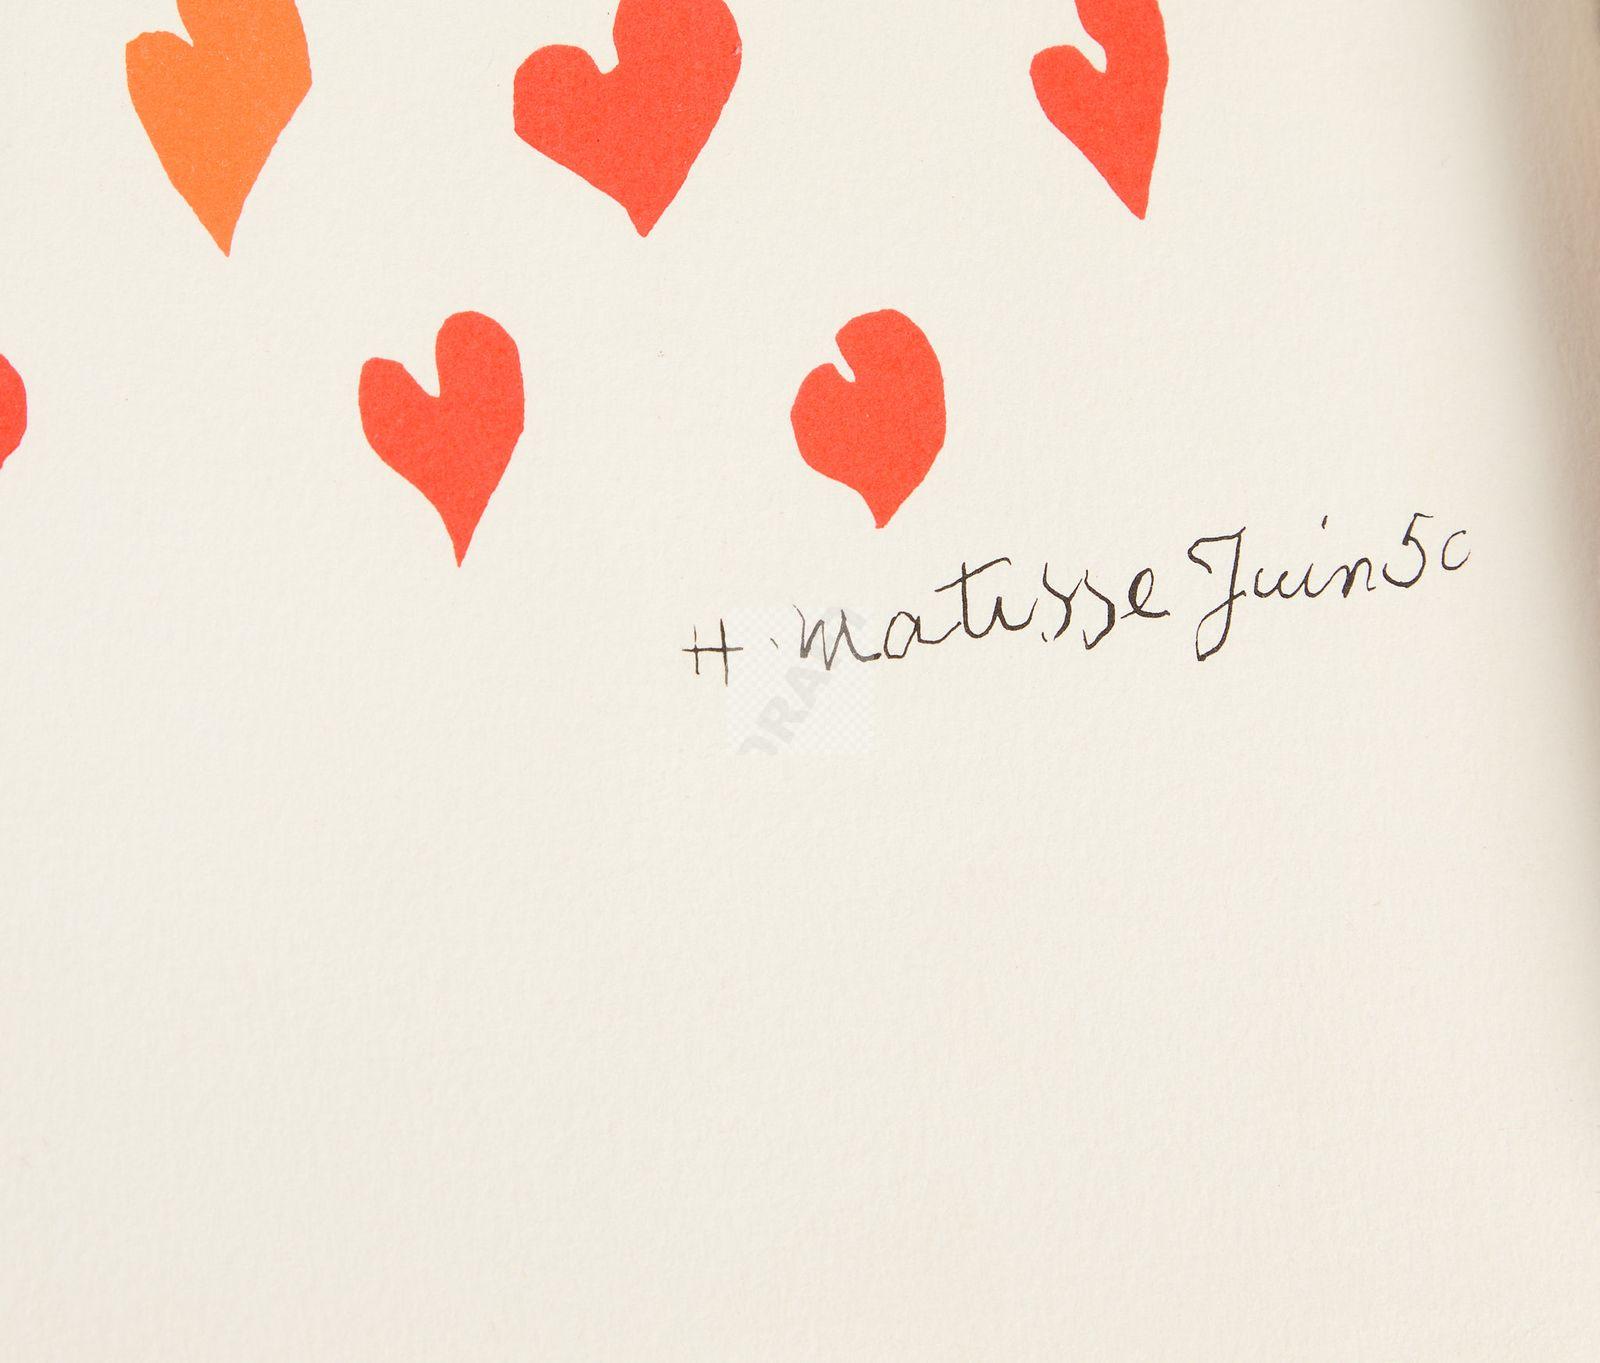 H. Matisse Juin 50